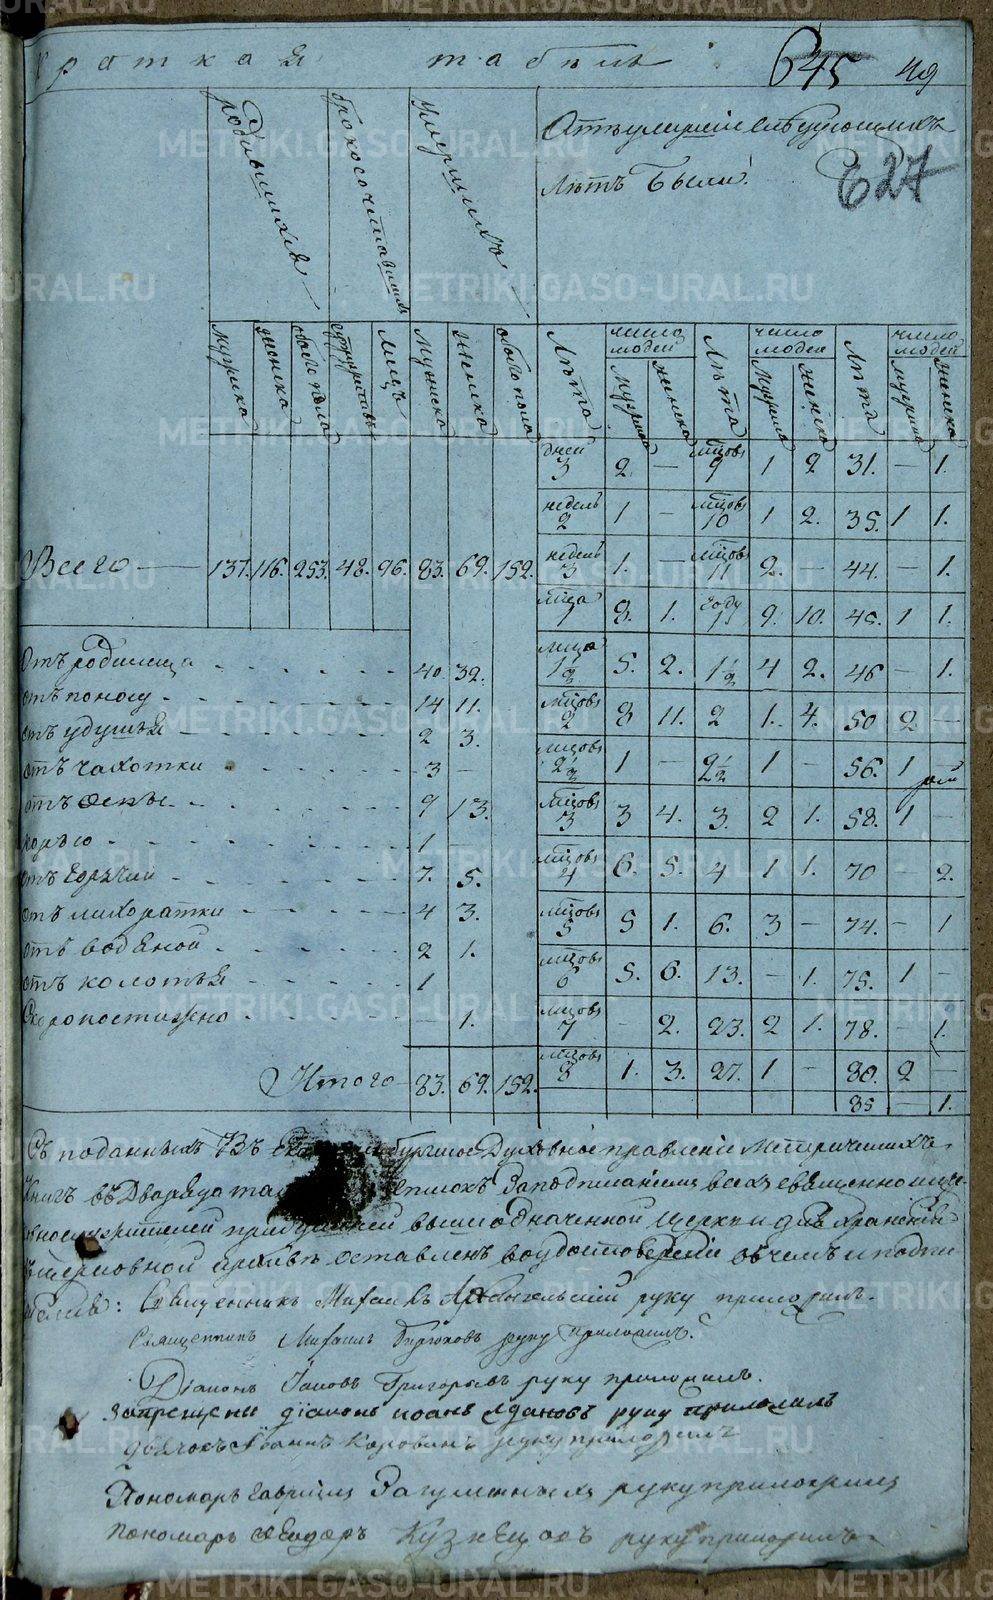 Краткая табѣль
645
49
627
родившихся
брокосочтавшихъ
умершихъ
Лѣтъ были
мужеска женска обоего пола супружествъ лицъ мужеска женска обоего пола
Лѣта число людей Лѣта число людей Лѣта число людей
мужеска женска мужеска женска мужеска женска
дней 3 2 — мцовъ 9 1 2 31. — 1.
недель 2 1 — мцовъ 10 1 2. 35. 1 1.
Всего — 137. 116. 253. 48. 96. 83. 69. 152.
недель 3 1. — мцовъ 11 2. — 44. — 1.
мца 1 8. 1. году 1 9. 10. 45. 1 1.
Отъ родимца 40. 32.
мца 1½ 5. 2. 1½ 4 2. 46 — 1.
отъ поносу 14 11.
мцовъ 2 8 11. 2 1. 4. 50 2 —
отъ удушья 2 3.
отъ чахотки 3 —
мцовъ 2½ 1 — 2½ 1 — 56. 1 —
отъ оспы 9 13.
мцовъ 3 3 4. 3. 2 1. 58. 1 —
корью 1
отъ горячки 7. 5.
мцовъ 4 6. 5. 4 1 1. 70 — 2.
отъ лихоратки 4 3.
мцовъ 5 5 1. 6. 3 — 74. — 1
отъ водяной 2 1.
отъ колотья 1
мцовъ 6 5. 6. 13. — 1. 75. 1 —
Скоропостижно — 1.
мцовъ 7 — 2. 23. 2 1. 78. — 1.
Итого 83. 69. 152.
мцовъ 8 1. 3. 27. 1 — 80. 2 —
85 — 1.
Съ поданныхъ въ Духовное правленіе метрическихъ
книгъ за подписаніемъ всехъ священно
вышеозначенной церкви для храненія
церковной архивѣ оставленъ въ удостовереніе о чемъ и подпи
Священникъ Михаилъ Архангельскій руку приложилъ.
Священникъ Михаилъ Бирюковъ руку приложилъ.
Діаконъ Іаковъ Григорьевъ руку приложилъ.
Запрещены діаконъ иоанъ ждановъ руку приложилъ
дьячокъ Иванъ Коровинъ руку приложилъ
Пономарь Гавріилъ руку приложилъ
пономарь Феодоръ Кузнецовъ руку приложилъ
METRIKI.GASO-URAL.RU